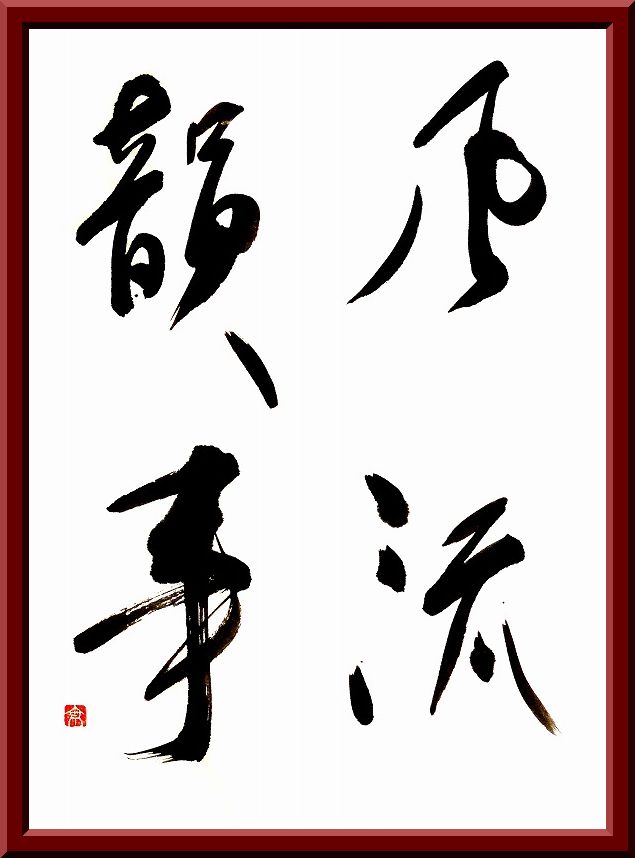 風流
韻事